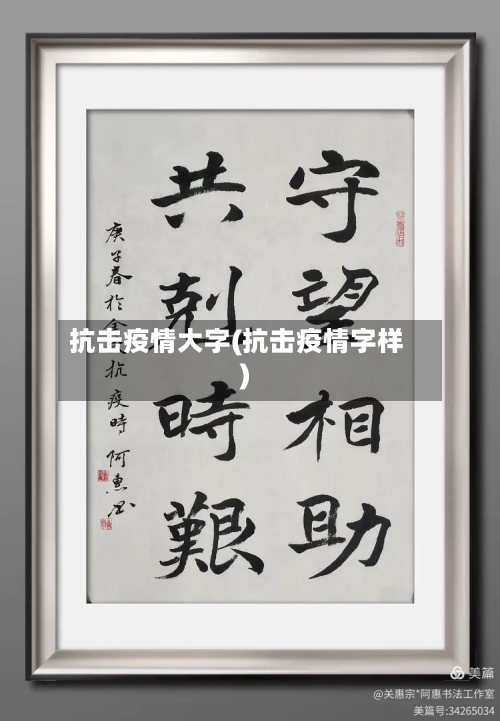 守望相助
共剋時艱
庚子春於
抗疫時 阿惠书
抗击疫情大字(抗击疫情字样
)
美篇
@关惠宗*阿惠书法工作室
美篇号:34265034